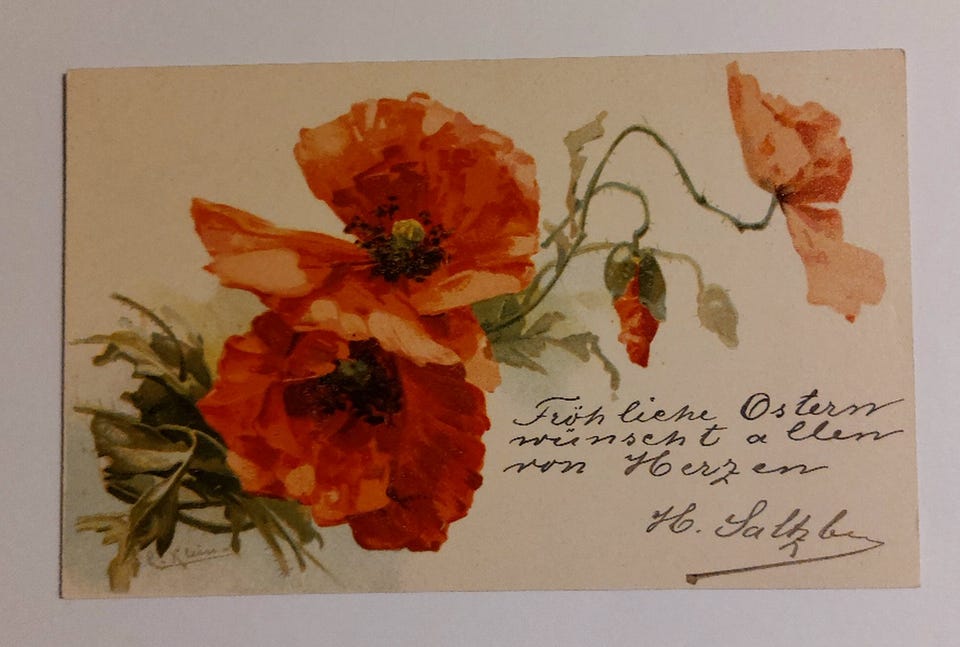 Fröhliche Ostern
wünscht allen
von Herzen
H. Saltzbe
C. Klein